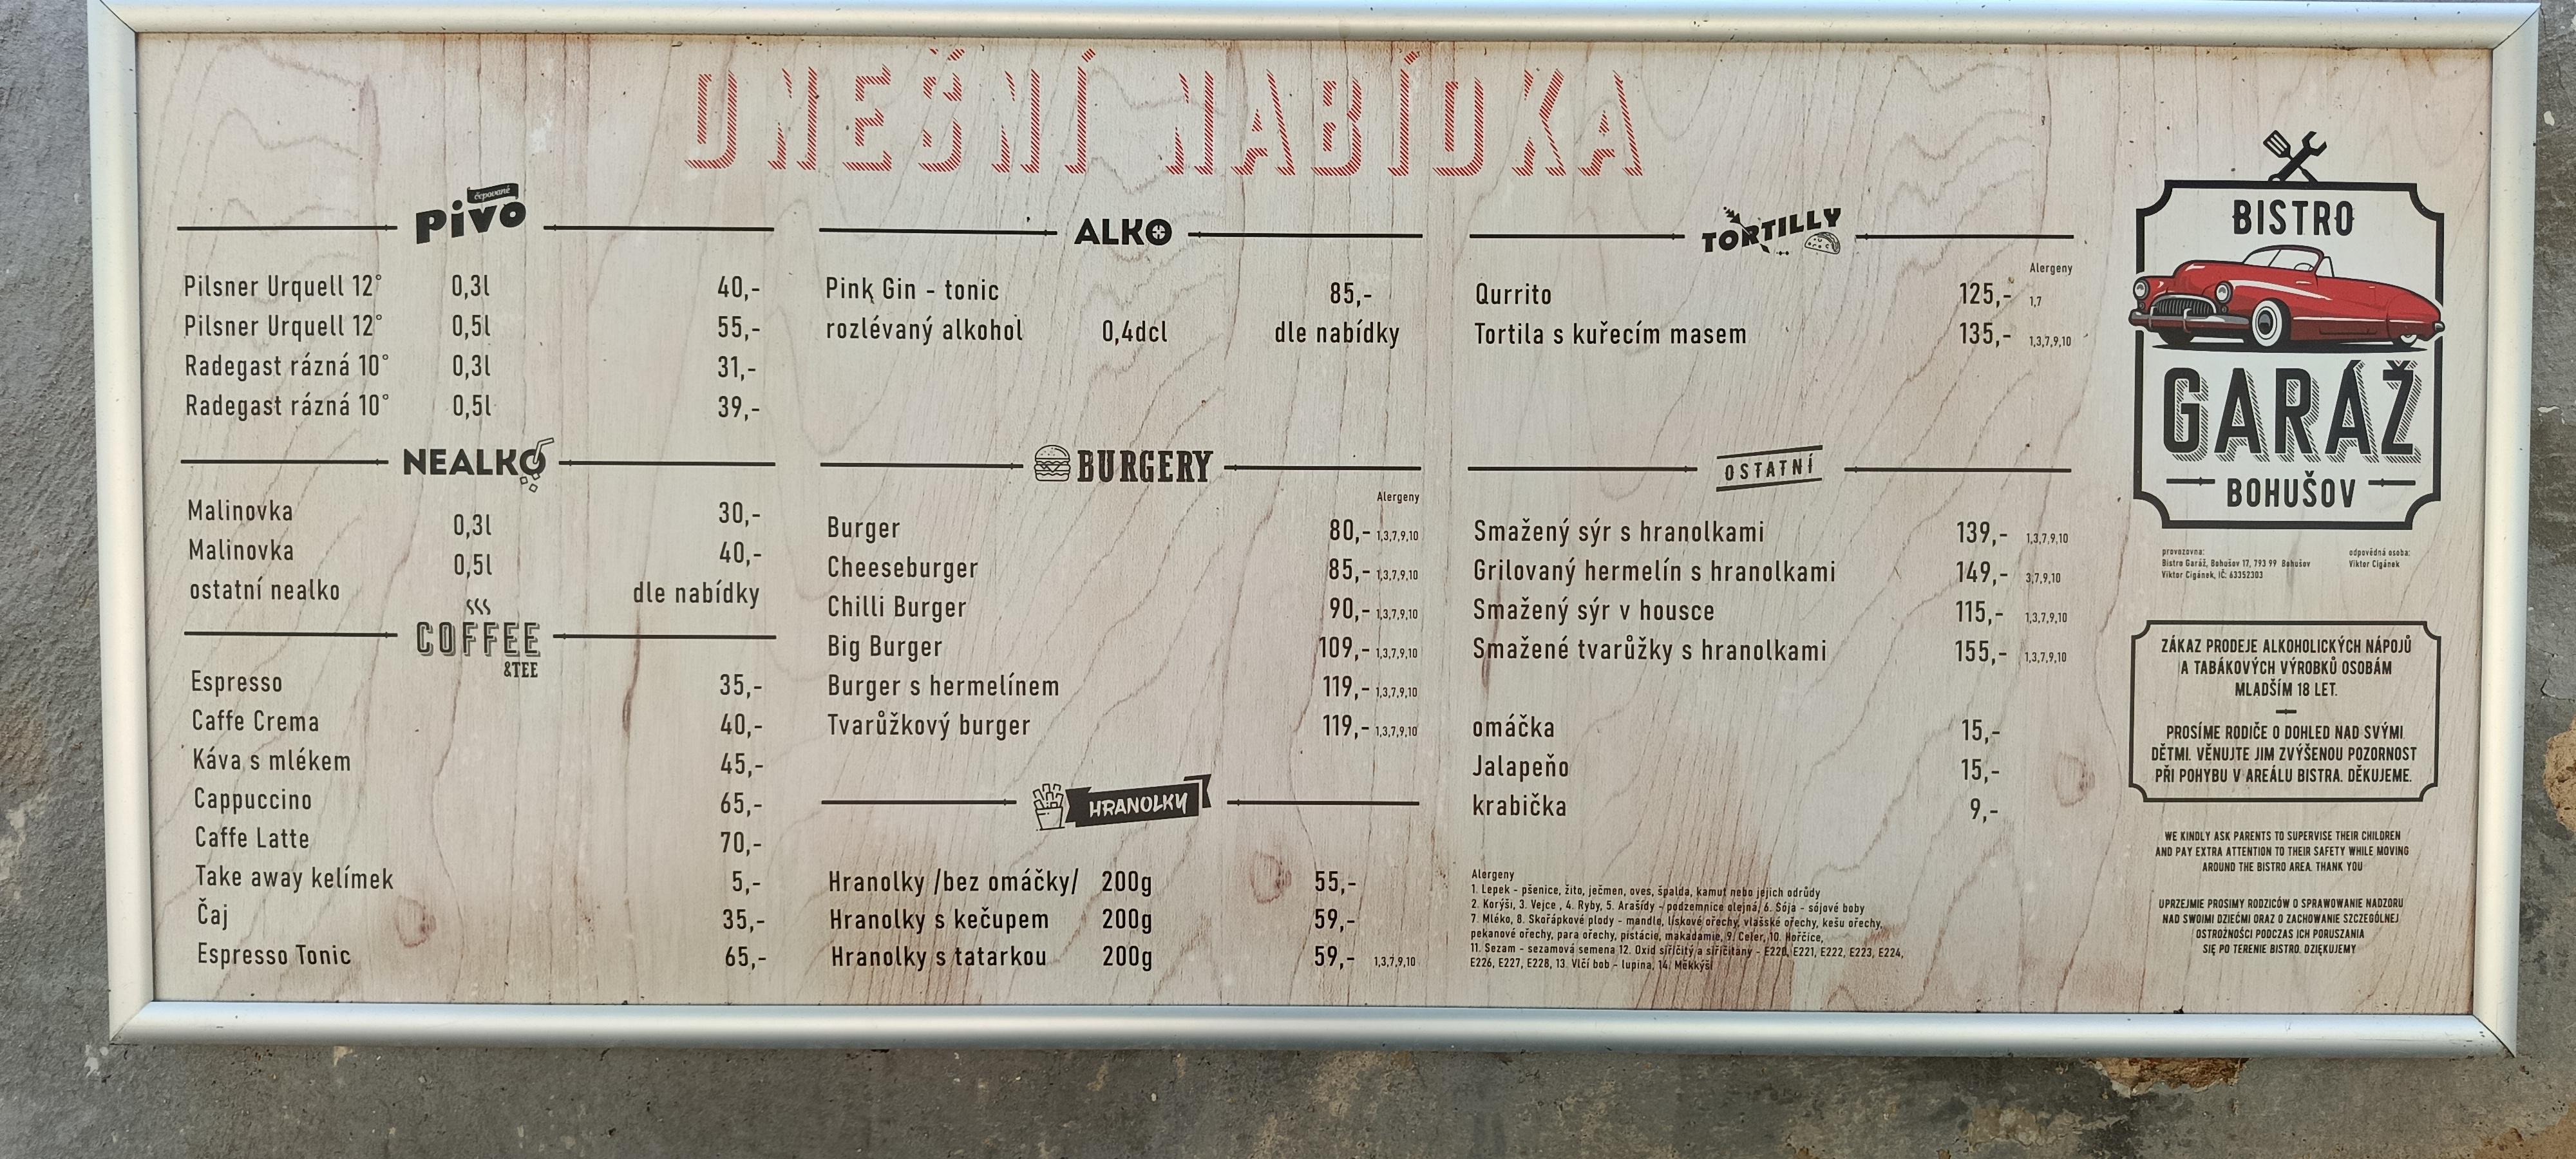 DNEŠNÍ NABÍDKA
čepované
Pivo
Pilsner Urquell 12° 0,3l 40,-
Pilsner Urquell 12° 0,5l 55,-
Radegast rázná 10° 0,3l 31,-
Radegast rázná 10° 0,5l 39,-
NEALKO
Malinovka 0,3l 30,-
Malinovka 0,5l 40,-
ostatní nealko dle nabídky
COFFEE
&TEE
Espresso 35,-
Caffe Crema 40,-
Káva s mlékem 45,-
Cappuccino 65,-
Caffe Latte 70,-
Take away kelímek 5,-
Čaj 35,-
Espresso Tonic 65,-
ALKO
Pink Gin - tonic 85,-
rozlévaný alkohol 0,4dcl dle nabídky
BURGERY
Alergeny
Burger 80,- 1,3,7,9,10
Cheeseburger 85,- 1,3,7,9,10
Chilli Burger 90,- 1,3,7,9,10
Big Burger 109,- 1,3,7,9,10
Burger s hermelínem 119,- 1,3,7,9,10
Tvarůžkový burger 119,- 1,3,7,9,10
HRANOLKY
Hranolky /bez omáčky/ 200g 55,-
Hranolky s kečupem 200g 59,-
Hranolky s tatarkou 200g 59,- 1,3,7,9,10
TORTILLY
Alergeny
Qurrito 125,- 1,7
Tortila s kuřecím masem 135,- 1,3,7,9,10
OSTATNÍ
Smažený sýr s hranolkami 139,- 1,3,7,9,10
Grilovaný hermelín s hranolkami 149,- 3,7,9,10
Smažený sýr v housce 115,- 1,3,7,9,10
Smažené tvarůžky s hranolkami 155,- 1,3,7,9,10
omáčka 15,-
Jalapeňo 15,-
krabička 9,-
Alergeny
1. Lepek - pšenice, žito, ječmen, oves, špalda, kamut nebo jejich odrůdy
2. Korýši, 3. Vejce , 4. Ryby, 5. Arašídy - podzemnice olejná, 6. Sója - sójové boby
7. Mléko, 8. Skořápkové plody - mandle, lískové ořechy, vlašské ořechy, kešu ořechy,
pekanové ořechy, para ořechy, pistácie, makadamie, 9. Celer, 10. Hořčice,
11. Sezam - sezamová semena 12. Oxid siřičitý a siřičitany - E220, E221, E222, E223, E224,
E226, E227, E228, 13. Vlčí bob - lupina, 14. Měkkýši
BISTRO
GARÁŽ
BOHUŠOV
provozovna:
Bistro Garáž, Bohušov 17, 793 99 Bohušov
Viktor Cigánek, IČ: 63352303
odpovědná osoba:
Viktor Cigánek
ZÁKAZ PRODEJE ALKOHOLICKÝCH NÁPOJŮ
A TABÁKOVÝCH VÝROBKŮ OSOBÁM
MLADŠÍM 18 LET.
PROSÍME RODIČE O DOHLED NAD SVÝMI
DĚTMI. VĚNUJTE JIM ZVÝŠENOU POZORNOST
PŘI POHYBU V AREÁLU BISTRA. DĚKUJEME.
WE KINDLY ASK PARENTS TO SUPERVISE THEIR CHILDREN
AND PAY EXTRA ATTENTION TO THEIR SAFETY WHILE MOVING
AROUND THE BISTRO AREA. THANK YOU
UPRZEJMIE PROSIMY RODZICÓW O SPRAWOWANIE NADZORU
NAD SWOIMI DZIEĆMI ORAZ O ZACHOWANIE SZCZEGÓLNEJ
OSTROŻNOŚCI PODCZAS ICH PORUSZANIA
SIĘ PO TERENIE BISTRO. DZIĘKUJEMY